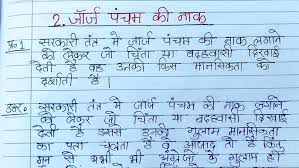 2. जॉर्ज पंचम की नाक
प्र०1 सरकारी तंत्र में जॉर्ज पंचम की नाक लगाने
को लेकर जो चिंता या बदहवासी दिखाई
देती है वह उनकी किस मानसिकता को
दर्शाती है ।
उत्तर० सरकारी तंत्र में जॉर्ज पंचम की नाक लगाने
को लेकर जो चिंता या बदहवासी दिखाई
देती है उससे उनकी गुलाम मानसिकता
का पता चलता है वो आजाद तो है किंतु
मन से अभी भी अंग्रेजो के गुलाम हो